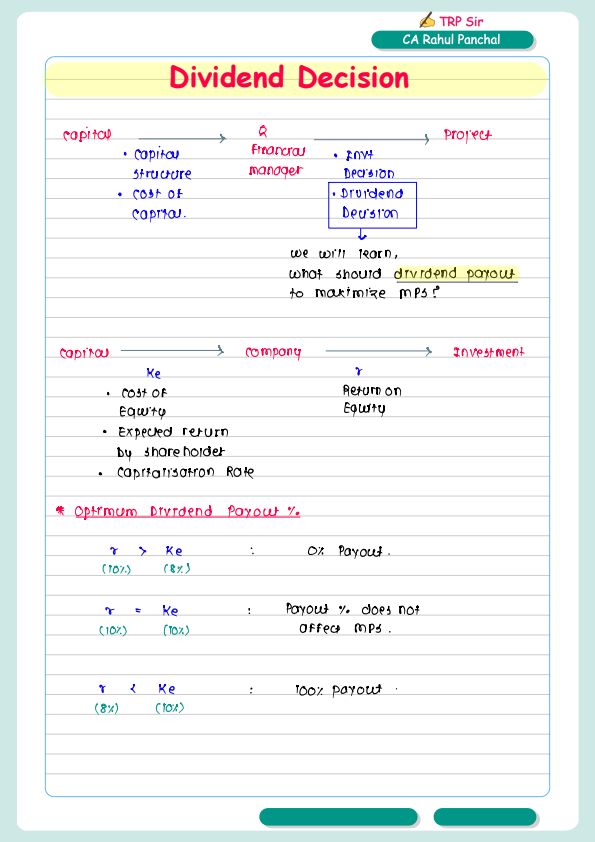 ✍ TRP Sir
CA Rahul Panchal
Dividend Decision
Capital → & Financial manager → Project
• Capital structure
• Cost of Capital.
• Invt Decision
• Dividend Decision
we will learn,
what should dividend payout
to maximize MPS?
Capital → Company → Investment
Ke
• Cost of Equity
• Expected return by shareholder
• Capitalisation Rate
r
Return on Equity
* Optimum Dividend Payout %
r > Ke : 0% Payout.
(10%) (8%)
r = Ke : Payout % does not
affect MPS.
(10%) (10%)
r < Ke : 100% payout.
(8%) (10%)